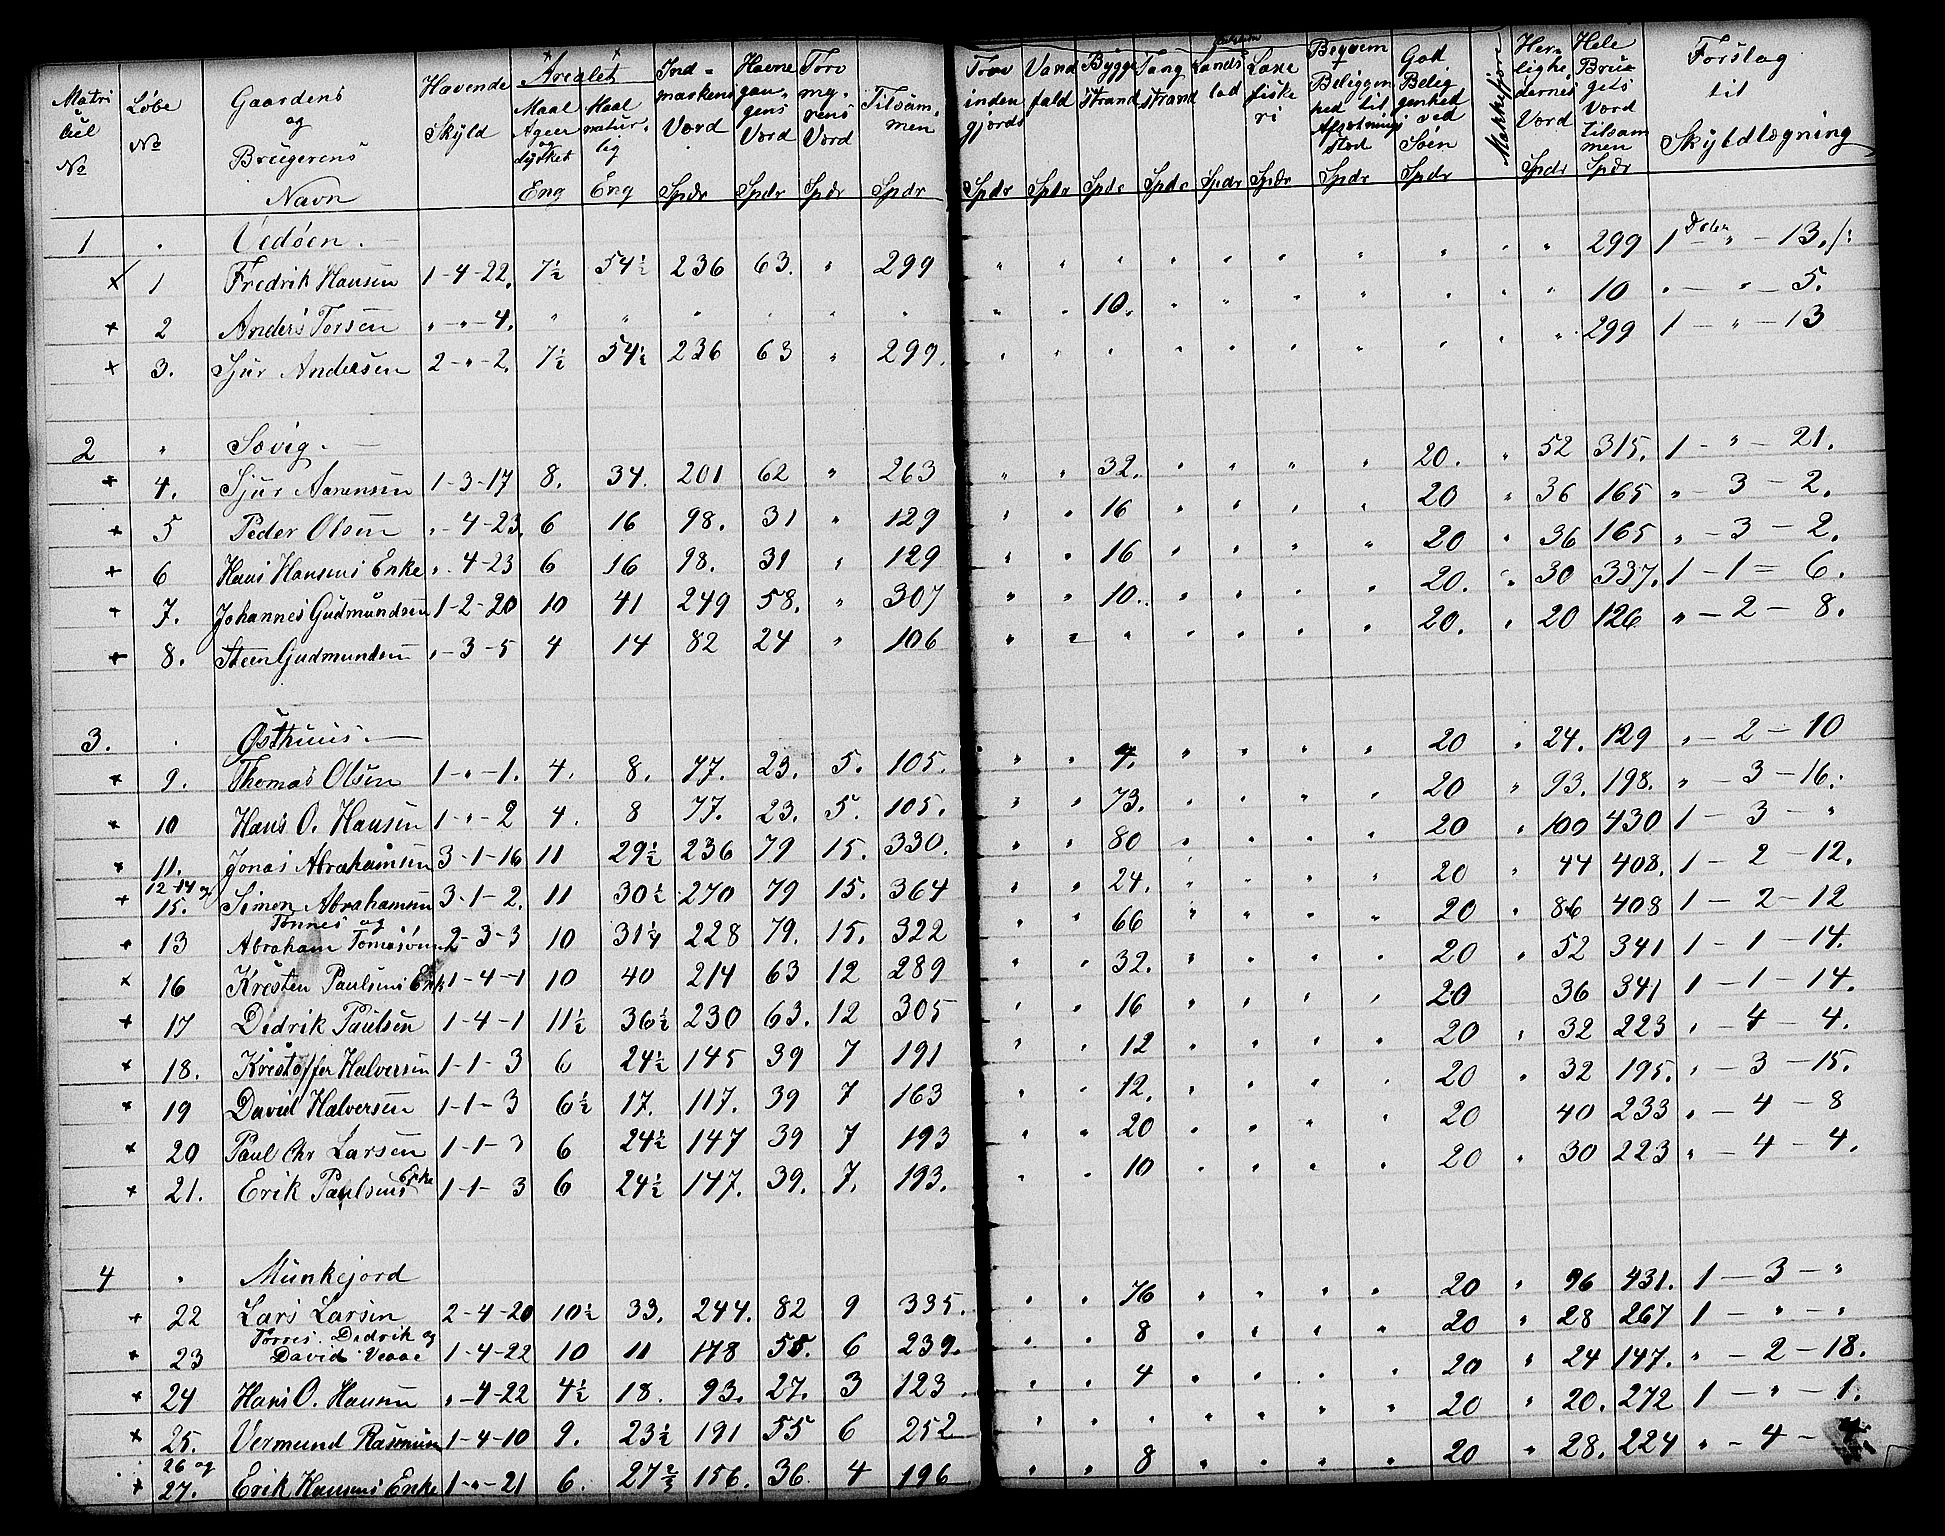 Matri kul No | Løbe No | Gaardens og Brugerens Navn | Havende Skyld | Arealet: Maal Ager og dyrket Eng | Maal natur-lig Eng | Ind-markens Værd Spdr | Havne gan-gens Værd Spdr | Torv my-rens Værd Spdr | Tilsam-men Spdr | Torv inden gjerds Spdr | Vand fald Spdr | Bygge strand Spdr | Tang strand Spdr | Lands lod Spdr | Laxe fiske ri Spdr | Beqvem Beliggen hed til Afsætnings sted Spdr | God Belig genhed ved Søen Spdr | Herlighe dernes Værd Spdr | Hele Bru gets Værd tilsam men Spdr | Forslag til Skyldlægning
1 " Vedøen. —
1 Fredrik Hansen 1-4-22. 7½ 54½ 236 63. " 299 " " " " " " " " " " 299 1 Daler " - 13 /:
2 Anders Torsen "-"-4. " " " " " " " " 10. " " " " " " " 10 " - " - 5.
3. Sjur Andersen 2-"-2. 7½ 54½ 236 63 " 299. " " " " " " " " " 299 1 - " - 13
2 " Søvig. —
4. Sjur Aanensen 1-3-17 8. 34. 201 62 " 263 " " 32. " " " " 20. " 52 315. 1 - " - 21.
5 Peder Olsen "-4-23. 6 16 98. 31 " 129 " " 16 " " " " 20 " 36 165 " - 3 - 2.
6 Hans Hansens Enke "-4-23 6 16 98. 31 " 129 " " 16 " " " " 20 " 36 165 " - 3 - 2.
7. Johannes Gudmundsen 1-2-20 10 41 249 58. " 307 " " 10. " " " " 20. " 30 337. 1 - 1 = 6.
8. Steen Gudmundsen "-3-5 4 14 82 24 " 106 " " " " " " " 20. " 20 126 " - 2 - 8.
3. " Østhuus. —
9. Thomas Olsen 1-"-1. 4. 8. 77. 23. 5. 105. " " 4. " " " " 20 " 24. 129 " - 2 - 10
10 Hans O. Hansen 1-"-2 4. 8 77. 23. 5. 105. " " 73. " " " " 20 " 93. 198. " - 3 - 16.
11. Jonas Abrahamsen 3-1-16 11 29½ 236 79 15. 330. " " 80 " " " " 20 " 100 430 1 - 3 - "
12-14 og 15. Simon Abrahamsen 3-1-2. 11 30½ 270 79 15. 364 " " 24. " " " " 20 " 44 408. 1 - 2 - 12.
13 Tønnes og Abraham Tomassen 2-3-3 10 31¼ 228 79. 15. 322 " " 66 " " " " 20 " 86 408 1 - 2 - 12
16 Kresten Paulsens Enk 1-4-1 10 40 214 63 12 289 " " 32. " " " " 20 " 52 341 1 - 1 - 14.
17 Didrik Paulsen 1-4-1 11½ 36½ 230 63. 12 305 " " 16 " " " " 20 36 341 1 - 1 - 14.
18. Kristoffer Halversen 1-1-3 6 24½ 145 39 7 191 " " 12 " " " " 20 " 32 223 " - 4 - 4.
19 David Halversen 1-1-3 6½ 17. 117. 39 7 163 " " 12. " " " " 20 " 32 195. " - 3 - 15.
20 Paul Chr Larsen 1-1-3 6 24½ 147 39 7 193 " " 20 " " " " 20 40 233 " - 4 - 8
21. Erik Paulsens Enke 1-1-3 6 24½ 147. 39. 7. 193. " " 10 " " " " 20 " 30 223 " - 4 - 4.
4 " Munkejord
22 Lars Larsen 2-4-20 10½ 33. 244. 82 9 335. " " 76 " " " " 20 " 96 431. 1 - 3 - "
23 Torres. Didrik og David Veaae 1-4-22 10 11 178 55. 6 239. " " 8 " " " " 20 " 28 267 1 - " - "
24 Hans O. Hansen "-4-22 4½ 18. 93. 27. 3 123 " " 4 " " " " 20 " 24 147. " - 2 - 18.
25. Vermund Rasmusen 1-4-10 9. 23½ 191 55 6 252 " " " " " " " 20 " 20. 272 1 - " - 1.
26 og 27. Erik Hansens Enke 1-"-21 6. 27 156. 36 4 196 " " 8 " " " " 20 " 28. 224 " - 4 -